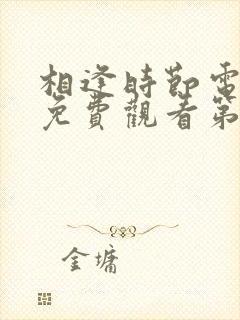 相逢時節電
免費觀看第
金墉